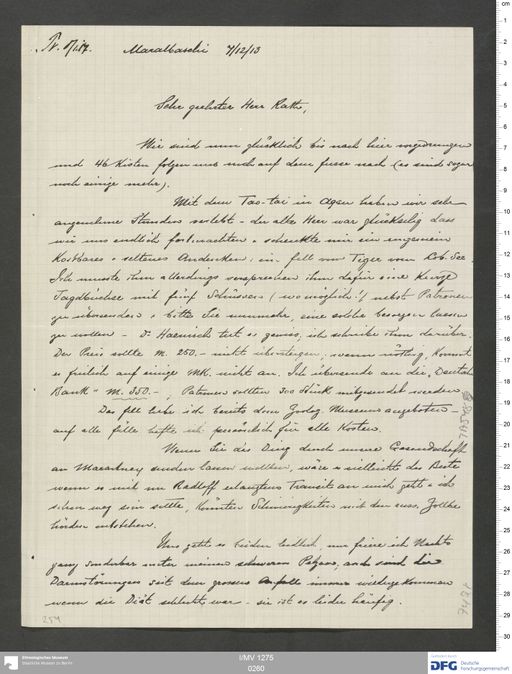 Maralbaschi 7/12/13
Sehr geehrter Herr Rath,
Wir sind nun glücklich bis nach hier vorgedrungen
und 46 Kisten folgen uns noch auf dem fusse nach (es sind sogar
noch einige mehr).
Mit dem Tao-tai in Aqsu haben wir sehr
angenehme Stunden verlebt - der alte Herr war glückselig dass
wir uns endlich & schenkte mir ein ungemein
Kostbares & seltenes Andenken: ein fell vom Tiger vom Lob-See
Ich musste ihm allerdings versprechen ihm dafür eine kurze
Jagdbüchse mit fünf Schüssen (wo möglich!) nebst Patronen
zu übersenden & bitte Sie nunmehr, eine solche besorgen lassen
zu wollen - Dr Haenisch tut es gewiss, ich schreibe ihm darüber.
Der Preis sollte M. 250.- nicht übersteigen, wenn nötig, kommt
es freilich auf einige MK. nicht an. Ich übersende an die, Deutsche
Bank" M. 350.-, Patronen sollten 300 Stück mitgesandt werden
Das fell habe ich bereits dem Zoolog. Museum angeboten -
auf alle fälle hafte ich persönlich für alle Kosten.
Wenn Sie das Ding durch unsere Gesandtschaft
an Macartney senden lassen wollten, wäre es vielleicht das Beste
wenn es mit, von Radloff erlangtem Transit an mich geht & ich
schon weg sein sollte, könnten Schwierigkeiten mit den russ. Zollbe
hörden entstehen.
Uns geht es leidlich, nur feiere ich Nachts
ganz sonderbar unter meinen schweren Pelzen, auch sind die
Darmstörungen seit dem grossen Anfalle immer wiedergekommen
wenn die Diät schlecht war - sie ist es leider häufig.
254
I/MV 1275
0260
Ethnologisches Museum
Staatliche Museen zu Berlin
gefördert durch
DFG Deutsche
Forschungsgemeinschaft
cm
1
2
3
4
5
6
7
8
9
10
11
12
13
14
15
16
17
18
19
20
21
22
23
24
25
26
27
28
29
30